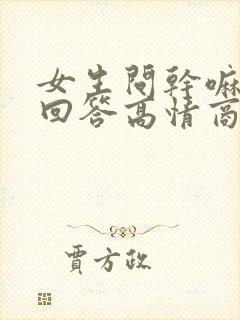 女生問幹嘛
回答高情商
賈方政